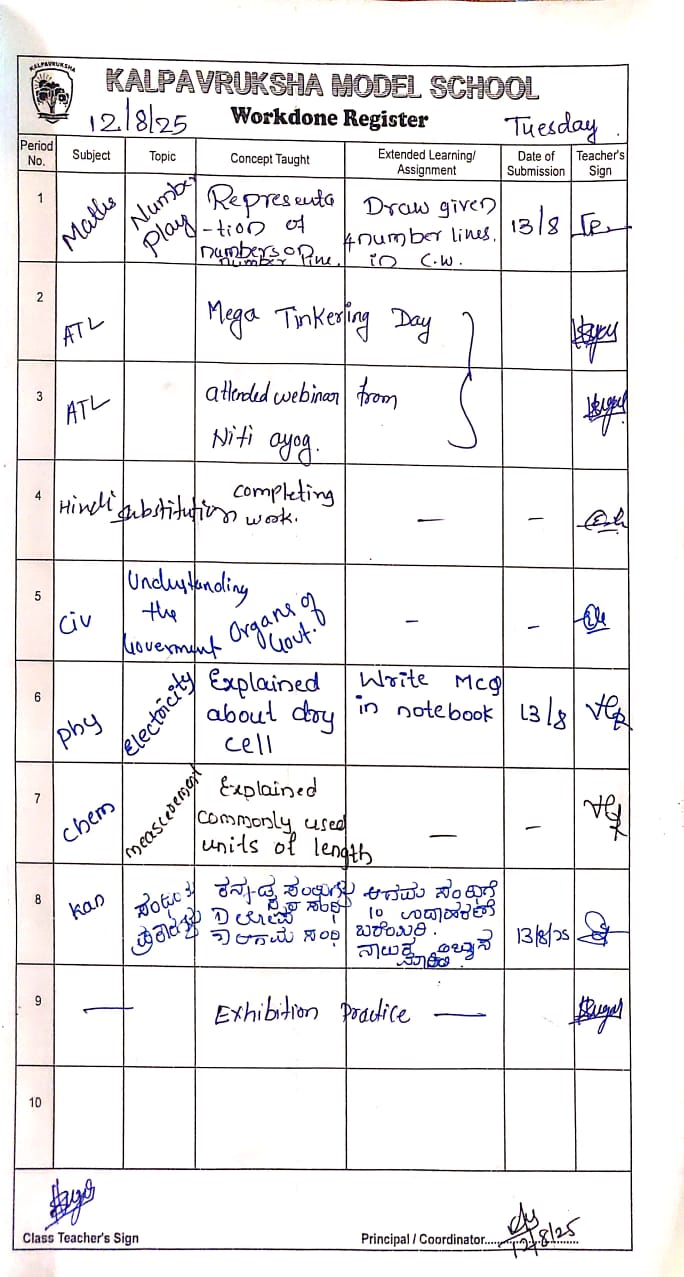 KALPAVRUKSHA
KALPAVRUKSHA MODEL SCHOOL
12/8/25 Workdone Register Tuesday.
Period No. Subject Topic Concept Taught Extended Learning/ Assignment Date of Submission Teacher's Sign
1 Maths Number Play
Representa
-tion of
numbers on
number line.
Draw given
4 number lines.
in C.W.
13/8
2 ATL Mega Tinkering Day
3 ATL attended webinar from
Niti ayog.
4 Hindi substitution completing
work. — –
5 Civ
Understanding
the
Goverment
Organs of
Govt.
– –
6 phy Electricity
Explained
about dry
cell
Write Mcq
in notebook
13/8
7 chem measurement
Explained
commonly used
units of length
— –
8 kan
ಕನ್ನಡ
ಆಗಮ ಸಂಧಿ
10 ಉದಾಹರಣೆ
ಬರೆಯಿರಿ.
13/8/25
9 — Exhibition Practice —
10
Class Teacher's Sign
Principal / Coordinator..... 12/8/25